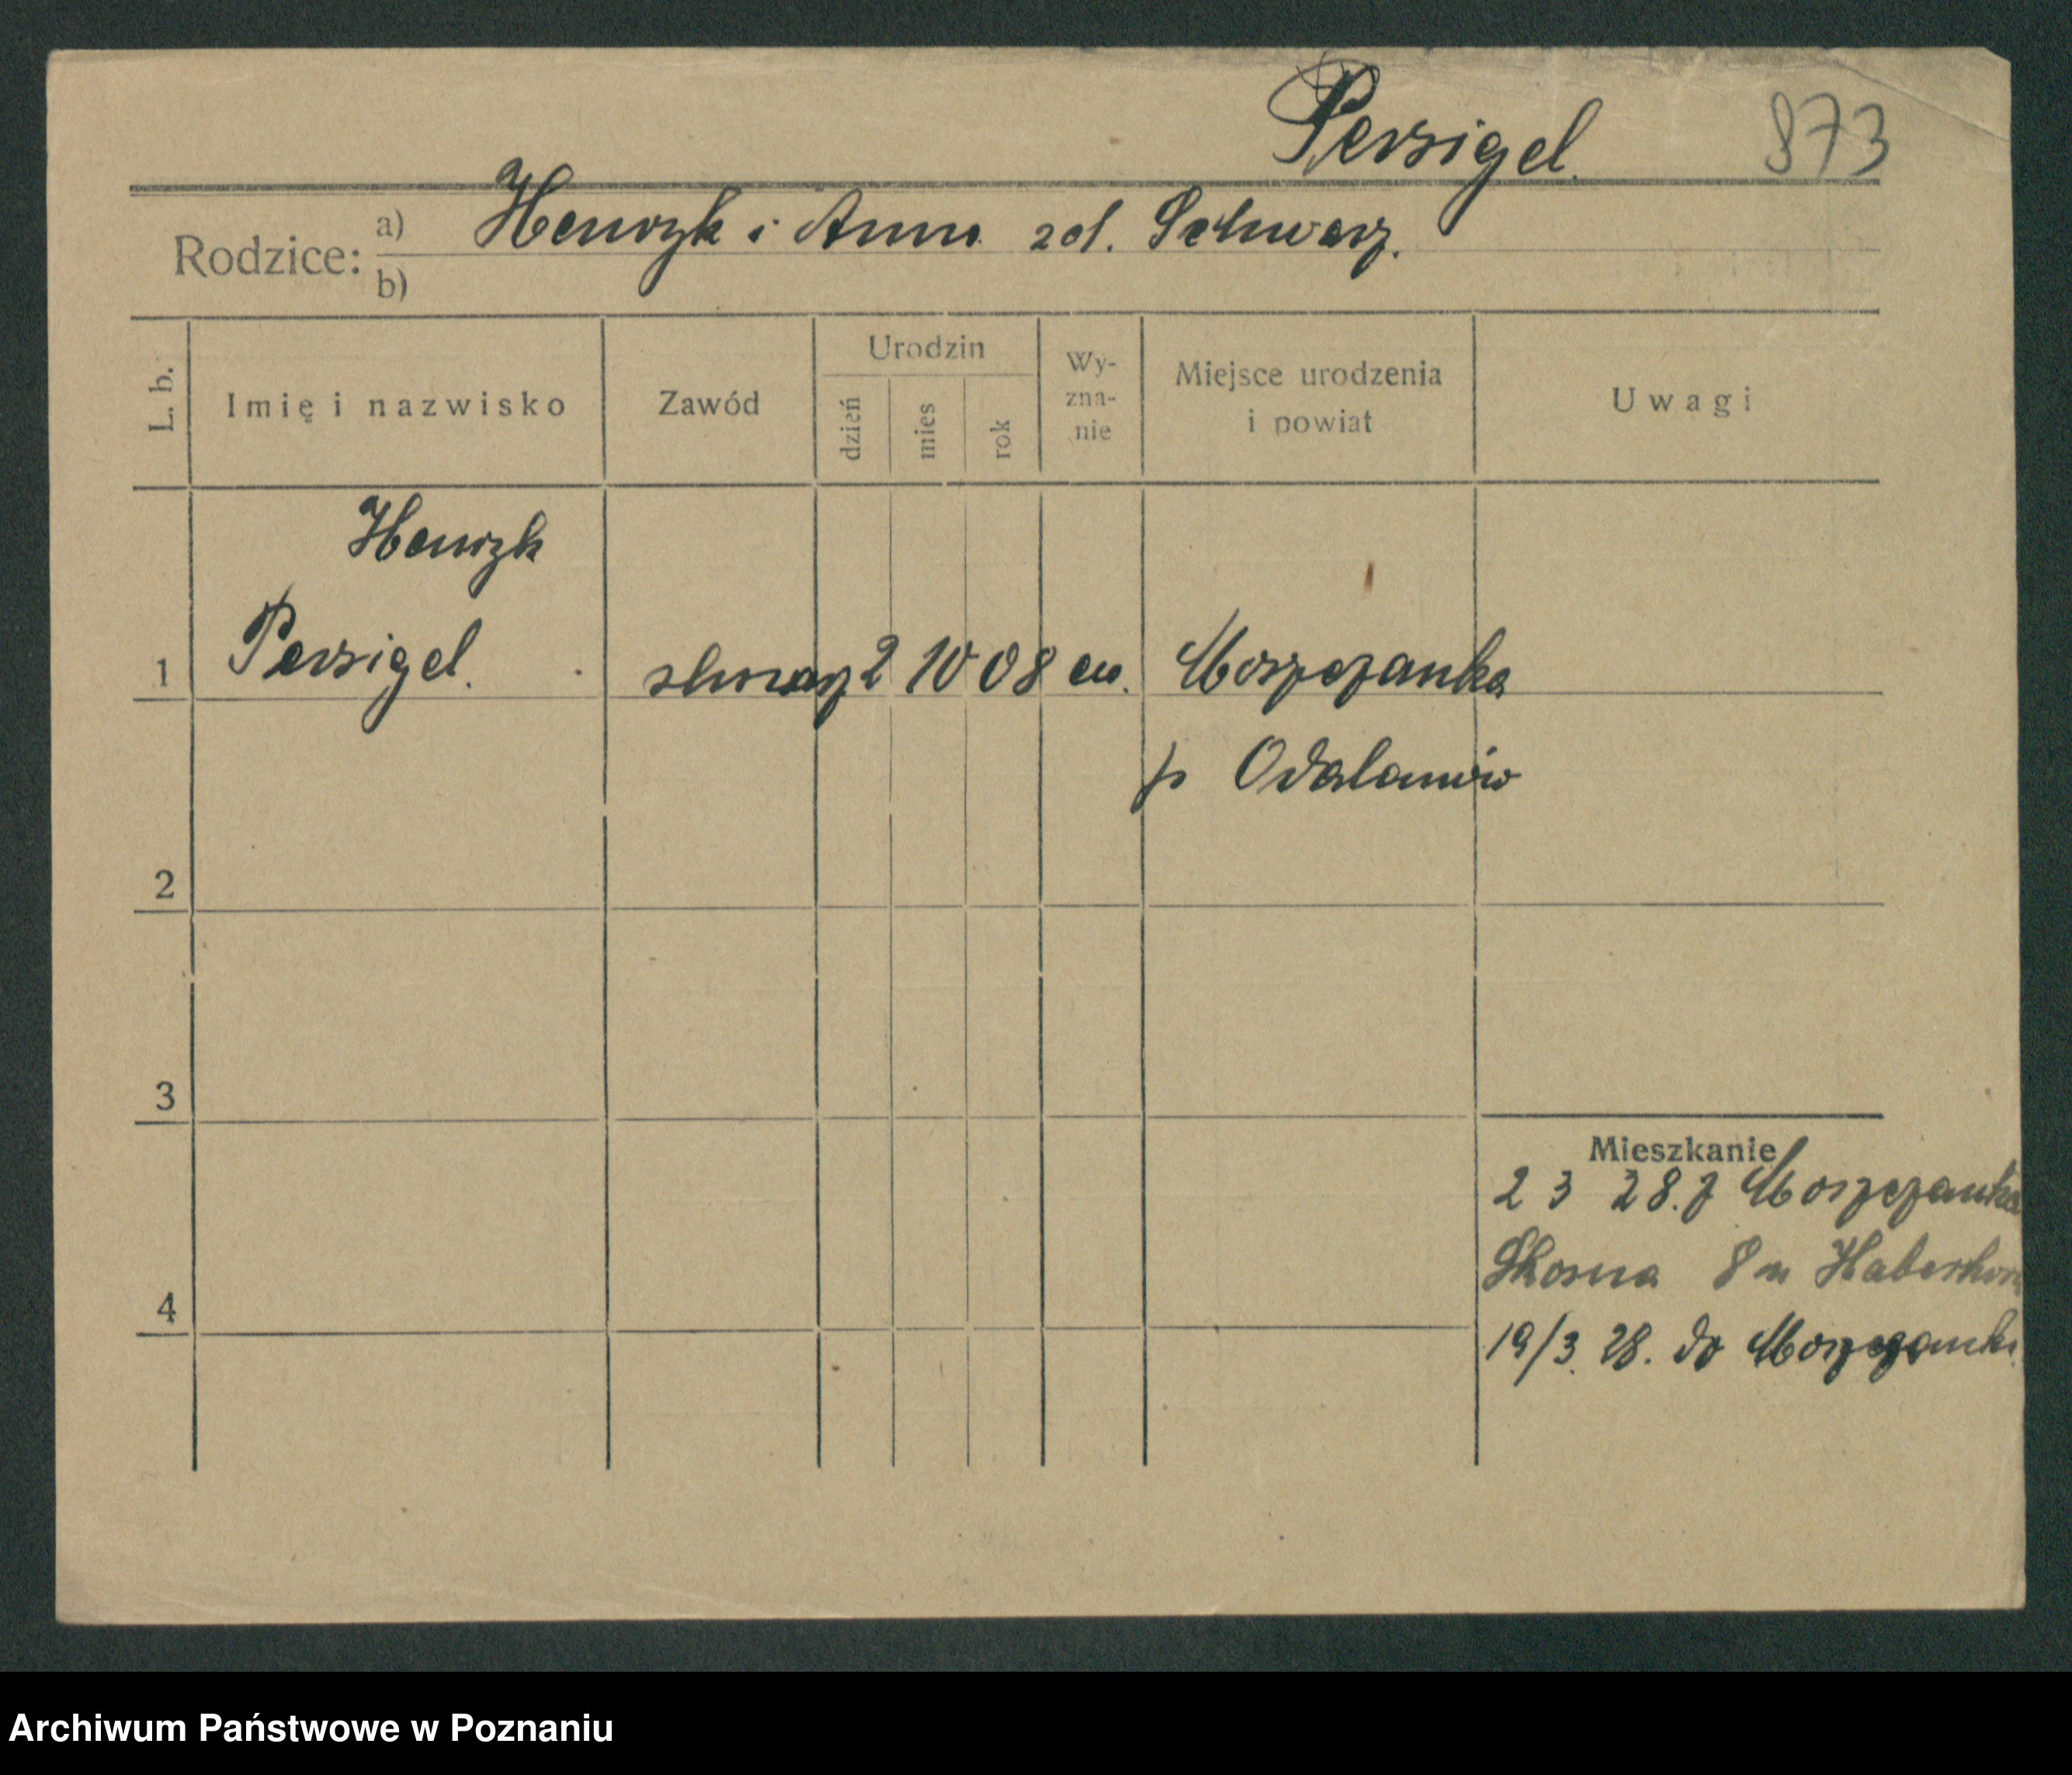 Persigel.
873
Rodzice:
a) Henryk i Anna zd. Schwarz.
b)
L. b.
Imię i nazwisko
Zawód
Urodzin
dzień
mies
rok
Wy-
zna-
nie
Miejsce urodzenia
i powiat
Uwagi
Henryk
1 Persigel. 2 10 08 ew. Moszczanka
p Odolanów
2
3
4
Mieszkanie
2 3 28. z Moszczanka
8
19/3. 28. do Moszczanki
Archiwum Państwowe w Poznaniu